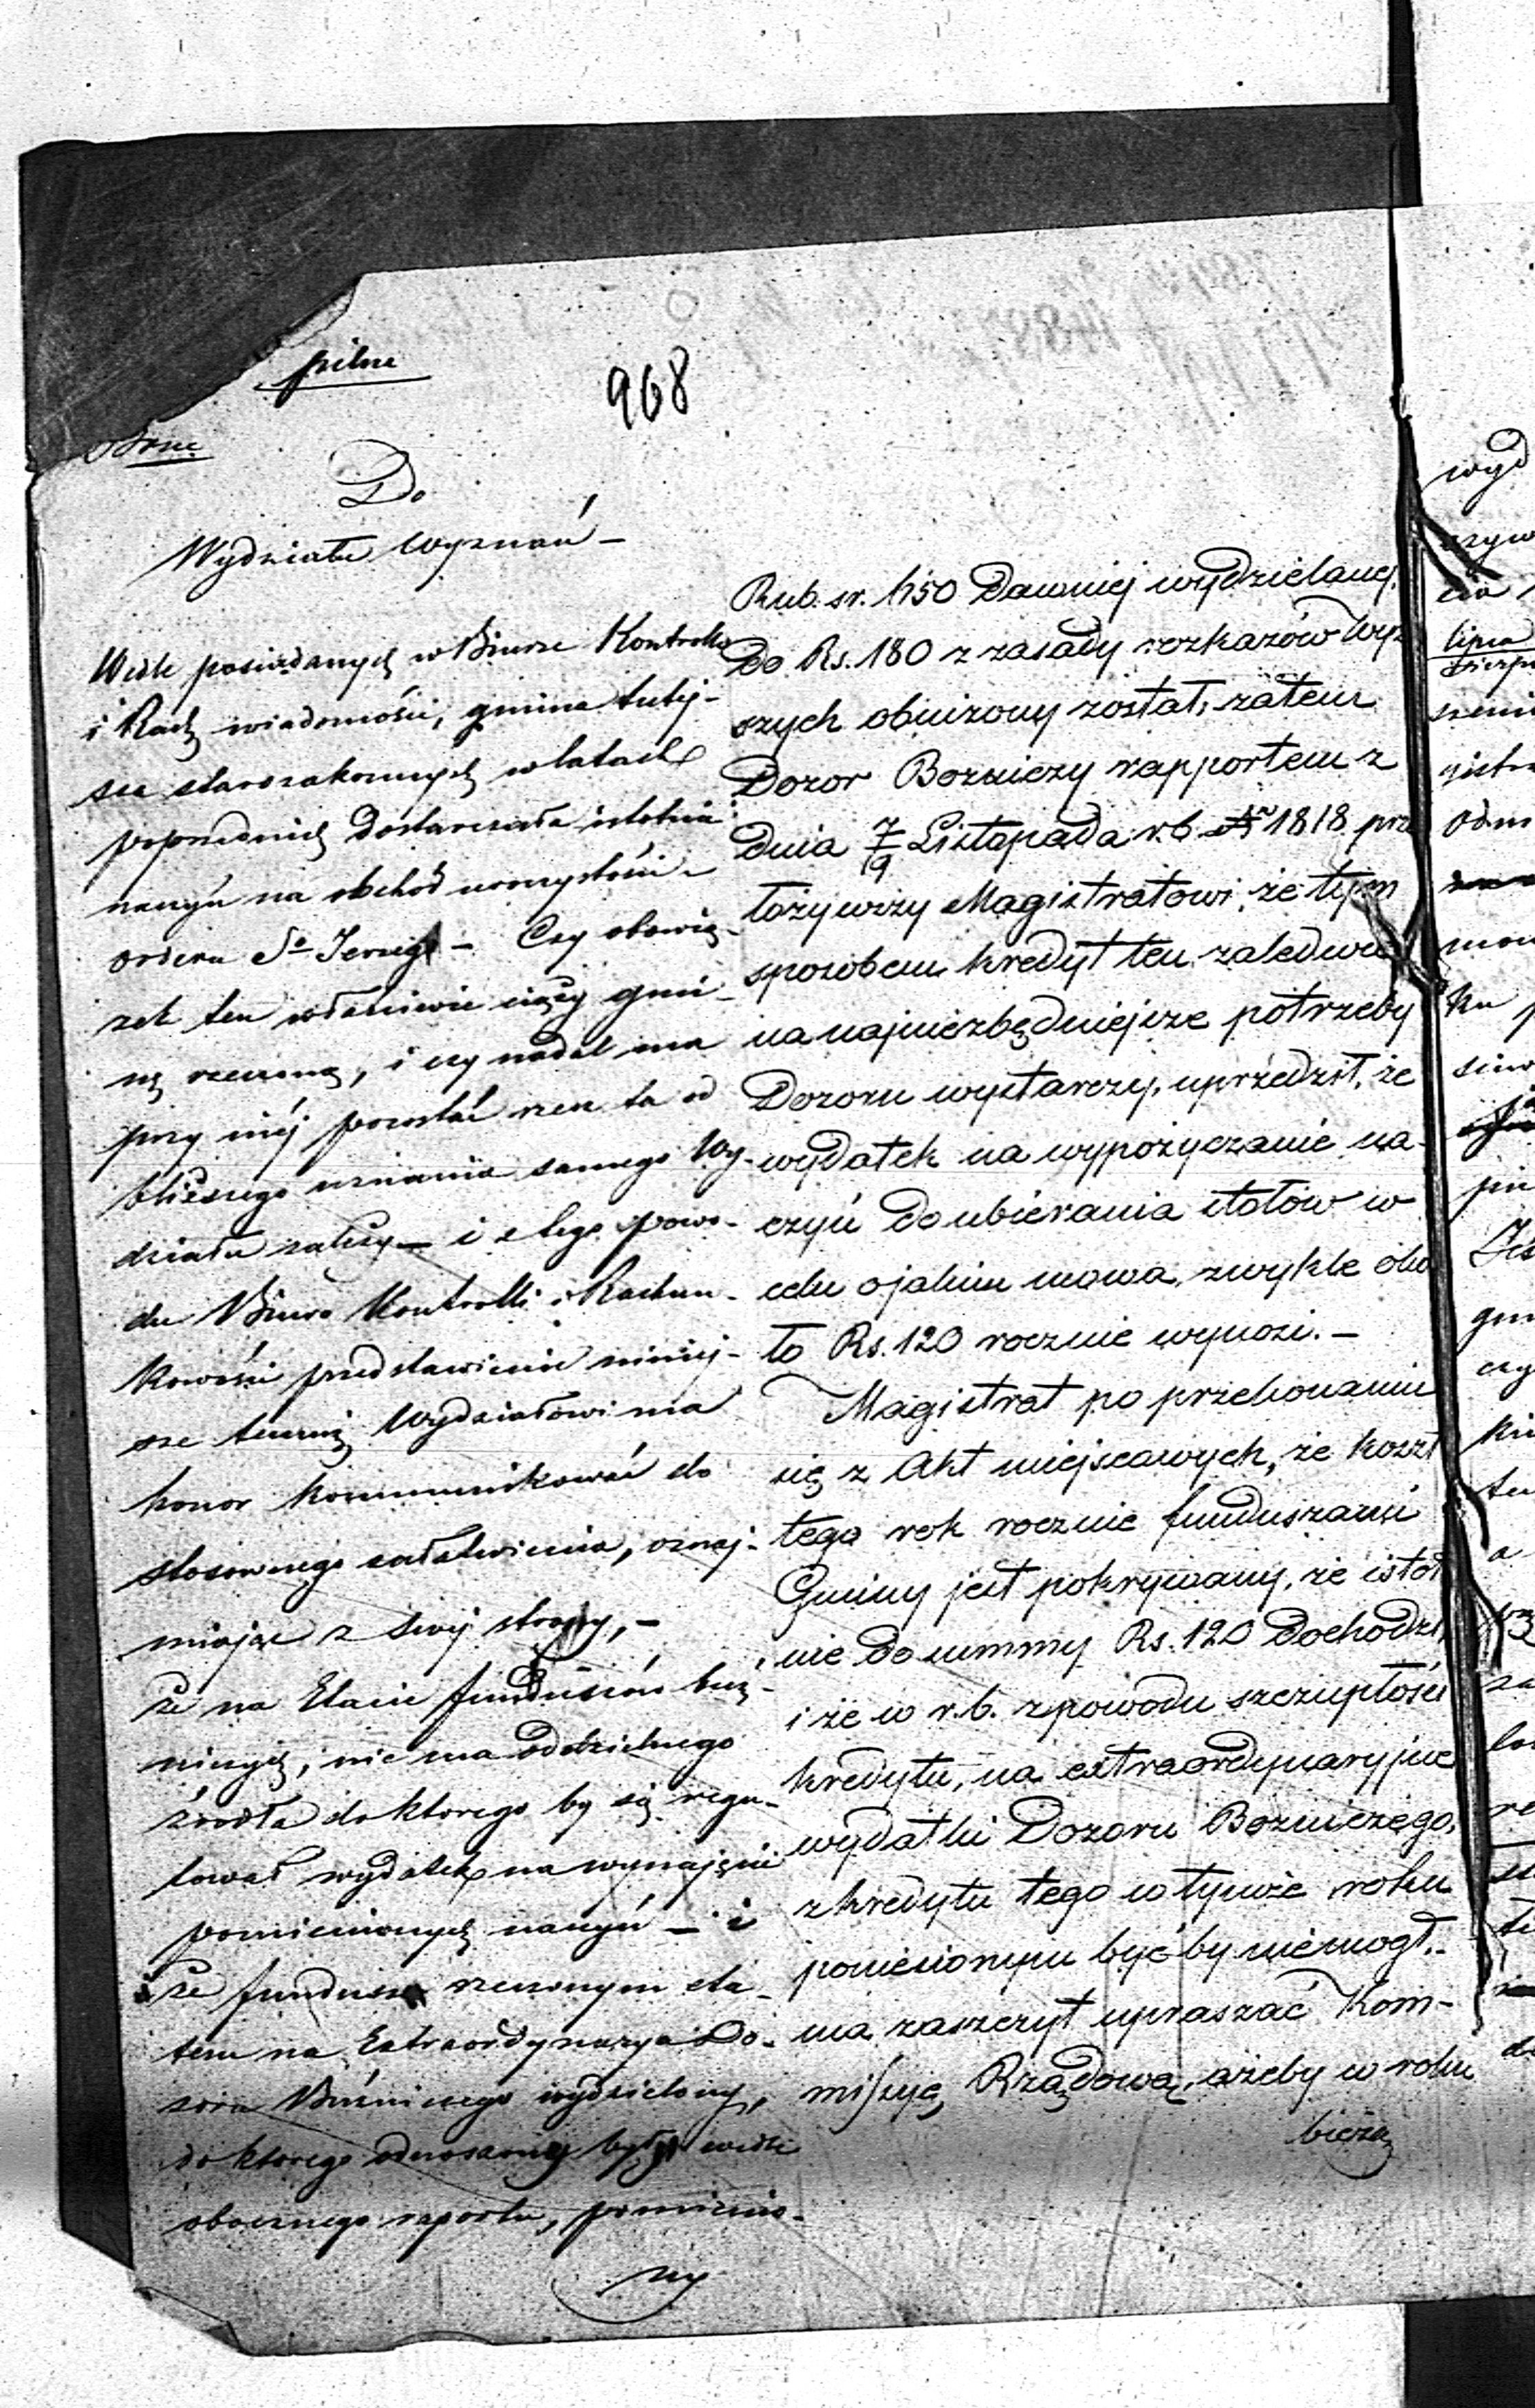 pilne
968
Do
Wydziału Wyznań –
Wedle posiadanych w Biurze Kontrolli
i Rach wiadomości, gmina tutej-
sza starozakonnych w latach
poprzednich dostarczała istotnie
naczyń na obchód uroczystości
orderu Sgo Jerzego – Czy obowią-
zek ten właściwie ciąży gmi-
nę rzeczoną, i czy nadal ma
przy niéj pozostać rzecz ta od
bliższego uznania samego Wy-
działu zależy – i z tego powo-
du Biuro Kontrolli i Rachun-
kowości przedstawienie niniej-
sze temuż Wydziałowi ma
honor kommunikować do
stosownego załatwienia, oznaj-
miając z swéj strony, –
że na Etacie funduszów buż-
niczych, nie ma oddzielnego
źródła do ktorego by się regu-
lował wydatek na wynajęcie
pomienionych naczyń – i
że fundusz rzeczonym eta-
tem na Extraordynarya Do-
zoru Bużniczego wydzielony,
do ktorego odnoszony były wedle
obocznego raportu, pomienio-
ny
Rub. sr. 450 Dawniej wydzielany,
do Rs. 180 z zasady rozkazów Wyż
szych obniżony został, zatem
Dozor Bozniczy rapportem z
dnia 7/19 Listopada r.b. Nr 1818 prze
łożywszy Magistratowi, że tym
sposobem kredyt ten zaledwie
na najniezbędniejsze potrzeby
Dozoru wystarczy, uprzedził, że
wydatek na wypożyczanie na-
czyń do ubierania stołów w
celu o jakim mowa, zwykle oko
ło Rs. 120 rocznie wynosi. –
Magistrat po przekonaniu
się z Akt miejscowych, że koszt
tego rok rocznie funduszami
Gminy jest pokrywany, że istot
nie do summy Rs. 120 dochodzi,
i że w r.b. z powodu szczupłości
kredytu, na extraordynaryjne
wydatki Dozoru Bozniczego,
z kredytu tego w tymże roku
poniesionym być by niemogł. –
ma zaszczyt upraszać Kom-
missyę Rządową, ażeby w roku
bieżą
wyd
lipca
sierp